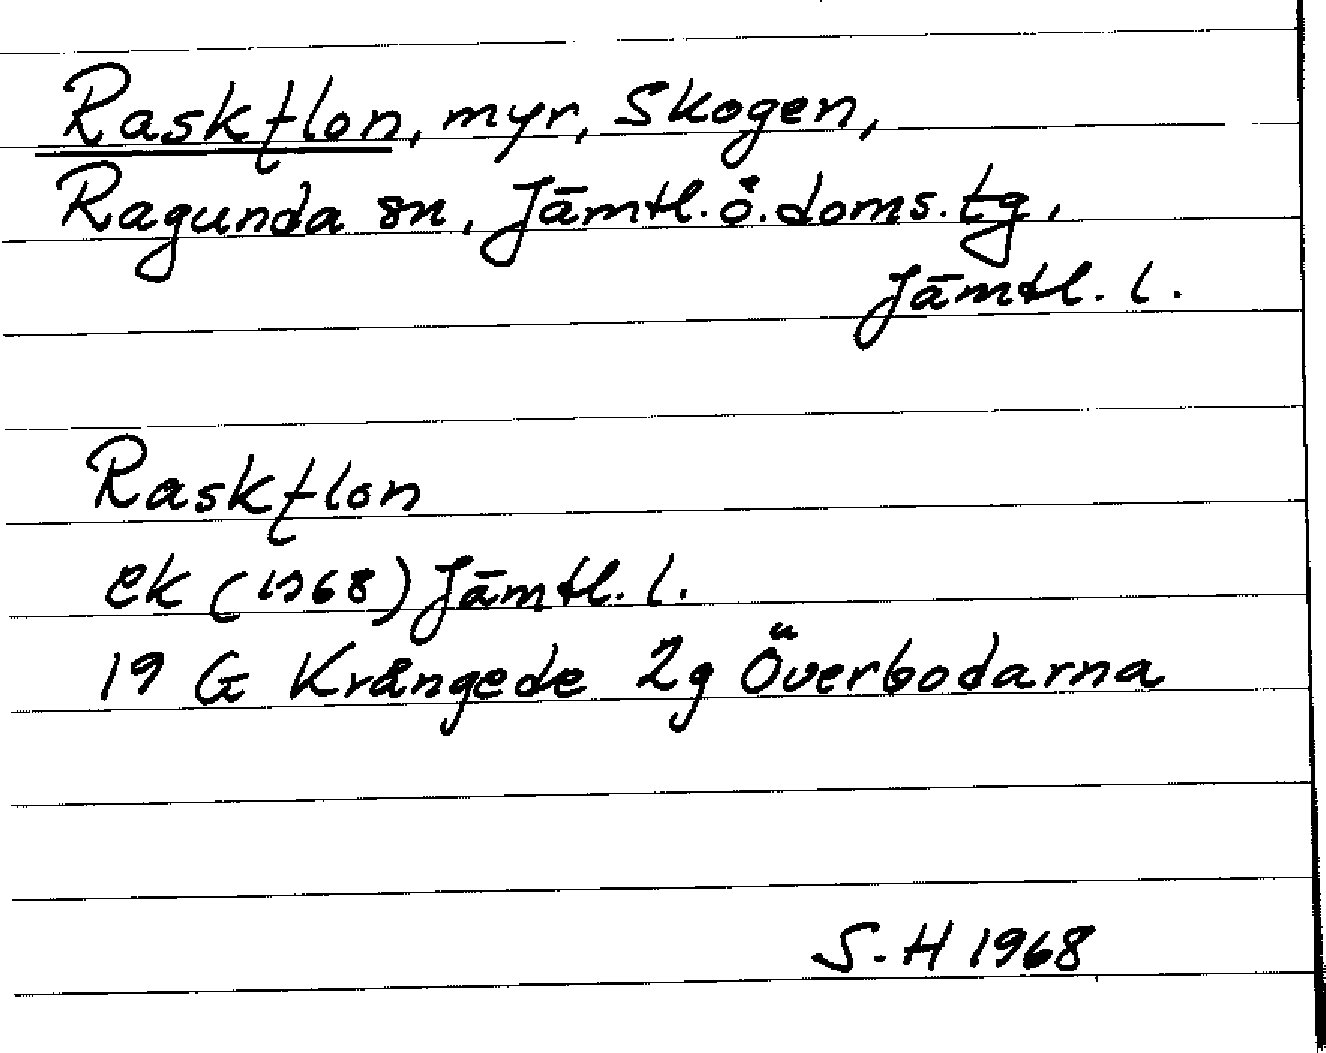 Raskflon, myr, Skogen,
Ragunda sn, Jämtl. ö. doms. tg,
Jämtl. l.
Raskflon
ek (1968) Jämtl. l.
19 G Krångede 2g Överbodarna
S-H 1968